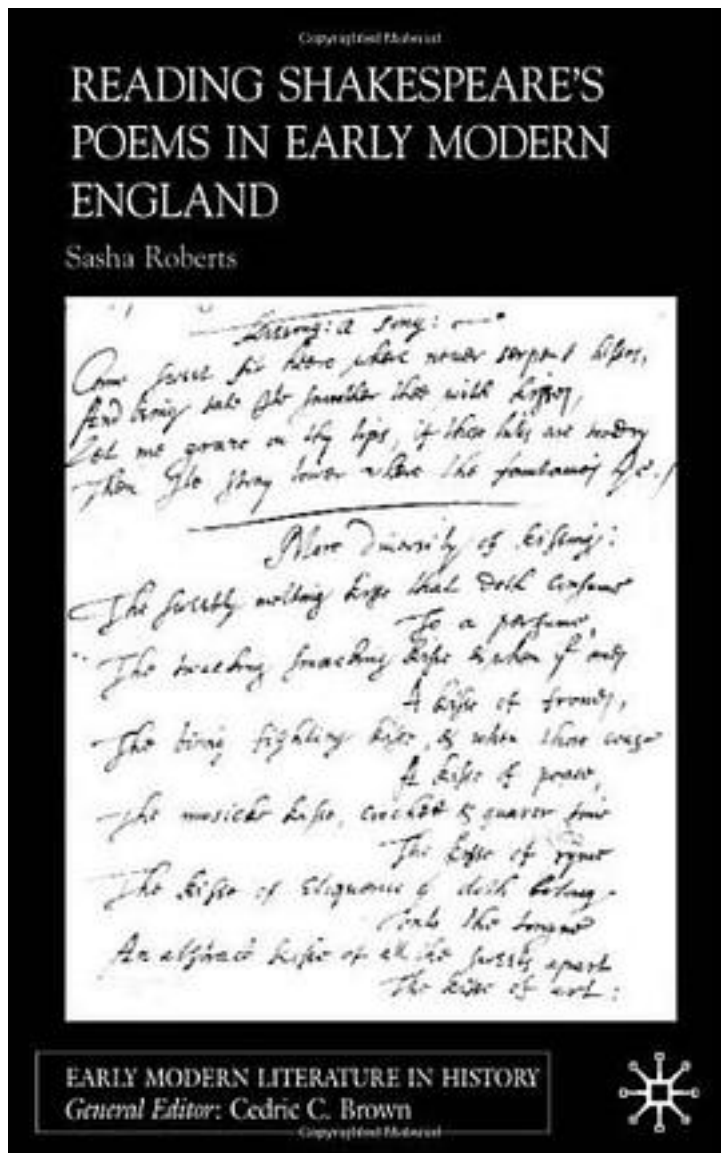 Copyrighted Material
READING SHAKESPEARE'S
POEMS IN EARLY MODERN
ENGLAND
Sasha Roberts
a song:
Come sweet sit heere where never serpent hisses,
And being sate Ile smother thee with kisses,
Let me graze on thy lips, if those hills are
Then Ile stray lower where the fountaines lye.
More diversity of kissing:
The sweetly melting kisse that doth consume
To a perfume,
The smacking kisse is when
A kisse of
The fighting kisse, is when those
A kisse of peace,
The musicke kisse, crochet & quaver time
The kisse of ryme
The kisse of Eloquence doth belong
the tongue
An abstract kisse of all the sweets apart
The kisse of art:
EARLY MODERN LITERATURE IN HISTORY
General Editor: Cedric C. Brown
Copyrighted Material